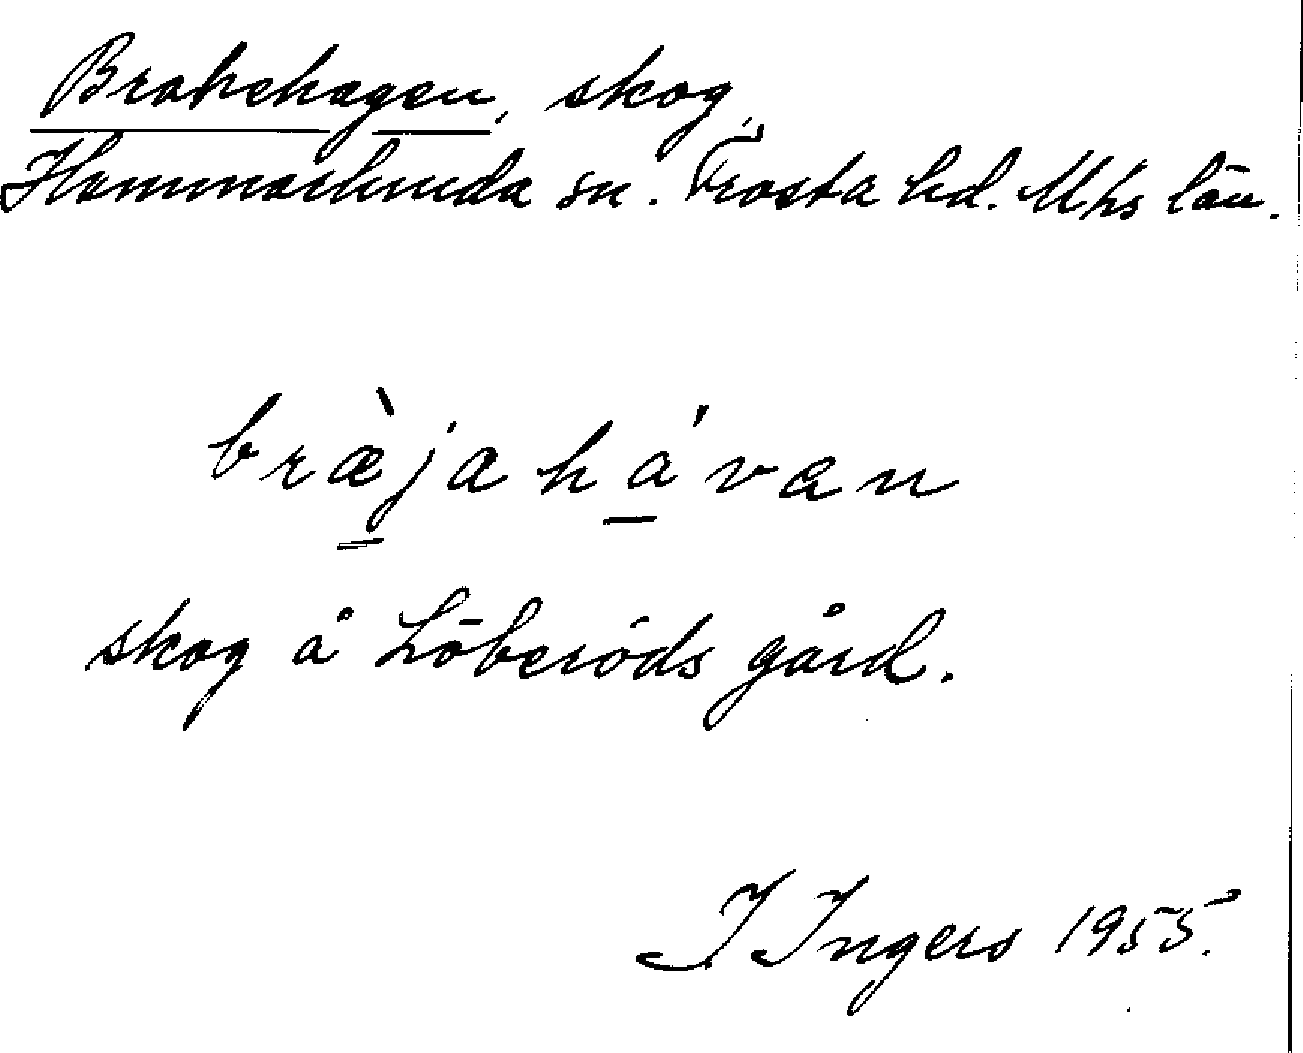 Brakehagen, skog,
Hammarlunda sn. Frosta hd. Mhs län.
bræ̀jahávan
skog å Löberöds gård.
I Ingers 1955.